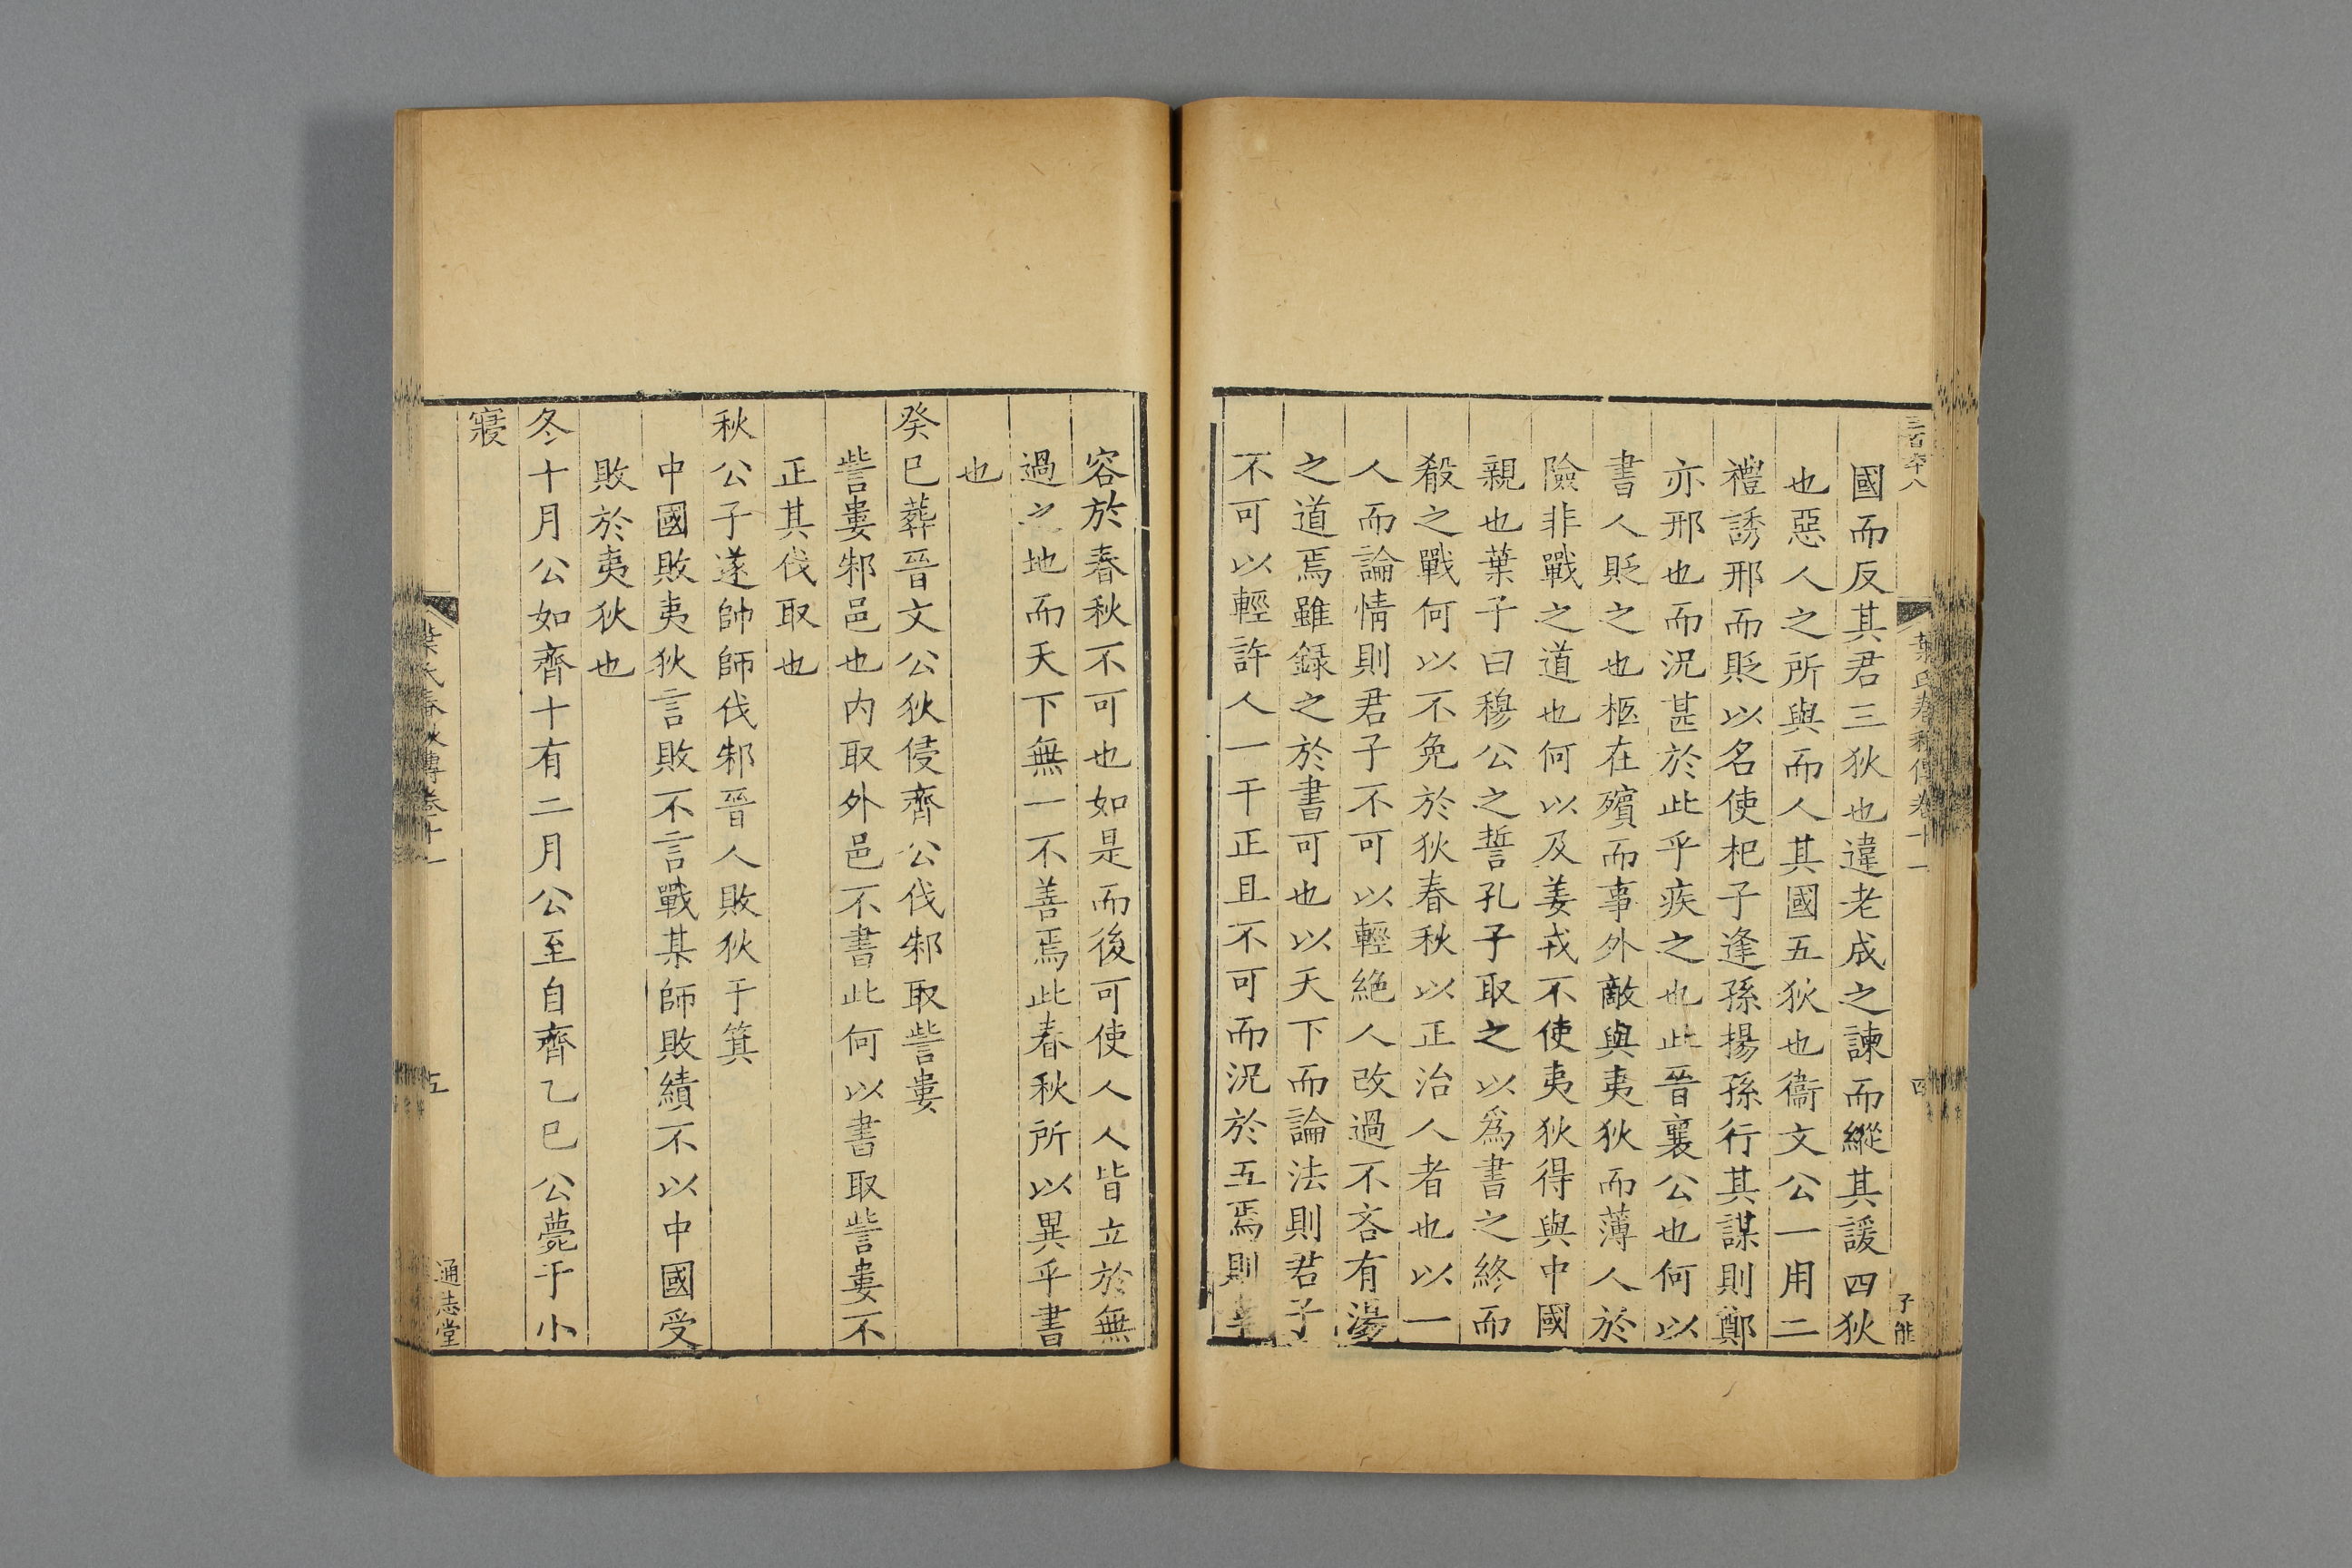 國而反其君三狄也違老成之諫而縱其諼四狄
也惡人之所與而人其國五狄也衞文公一用二
禮誘邢而貶以名使杞子逢孫揚孫行其謀則鄭
亦邢也而況甚於此乎疾之也此晉襄公也何以
書人貶之也柩在殯而事外敵與夷狄而薄人於
險非戰之道也何以及姜戎不使夷狄得與中國
親也葉子曰穆公之誓孔子取之以爲書之終而
殽之戰何以不免於狄春秋以正治人者也以一
人而論情則君子不可以輕絶人改過不吝有湯
之道焉雖録之於書可也以天下而論法則君子
不可以輕許人一干正且不可而況於五焉則
三百六十八
葉氏春秋傳卷十一
四
子能
容於春秋不可也如是而後可使人人皆立於無
過之地而天下無一不善焉此春秋所以異乎書
也
癸巳葬晉文公狄侵齊公伐邾取訾婁
訾婁邾邑也内取外邑不書此何以書取訾婁不
正其伐取也
秋公子遂帥師伐邾晉人敗狄于箕
中國敗夷狄言敗不言戰某師敗績不以中國受
敗於夷狄也
冬十月公如齊十有二月公至自齊乙巳公薨于小
寢
葉氏春秋傳卷十一
五
通志堂